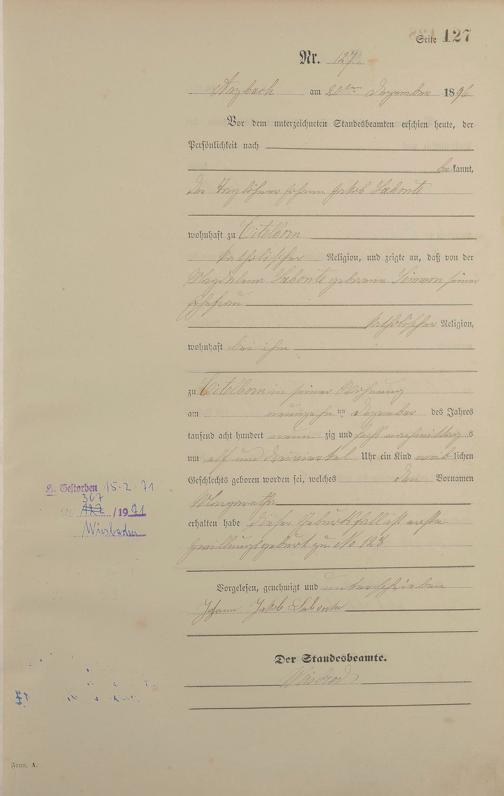 Seite 127
Nr. 127
Arzbach am 20ten Dezember 1896
Vor dem unterzeichneten Standesbeamten erschien heute, der
Persönlichkeit nach
bekannt,
der Tagelöhner Johann Jakob Labonte
wohnhaft zu Eitelborn
katholischer Religion, und zeigte an, daß von der
Magdalena Labonte geborene Simon seiner
Ehefrau
katholischer Religion,
wohnhaft bei ihm
zu Eitelborn in seiner Wohnung
am neunzehnten Dezember des Jahres
tausend acht hundert neunzig und sechs nachmittags
um elf und dreiviertel Uhr ein Kind weiblichen
Geschlechts geboren worden sei, welches den Vornamen
Margaretha
erhalten habe Dieser Geburtsfall ist erste
Zwillingsgeburt zu No 128
Vorgelesen, genehmigt und unterschrieben
Johann Jakob Labonte
Der Standesbeamte.
Gestorben 15.2.71
367
/1971
Wiesbaden
Form. A.